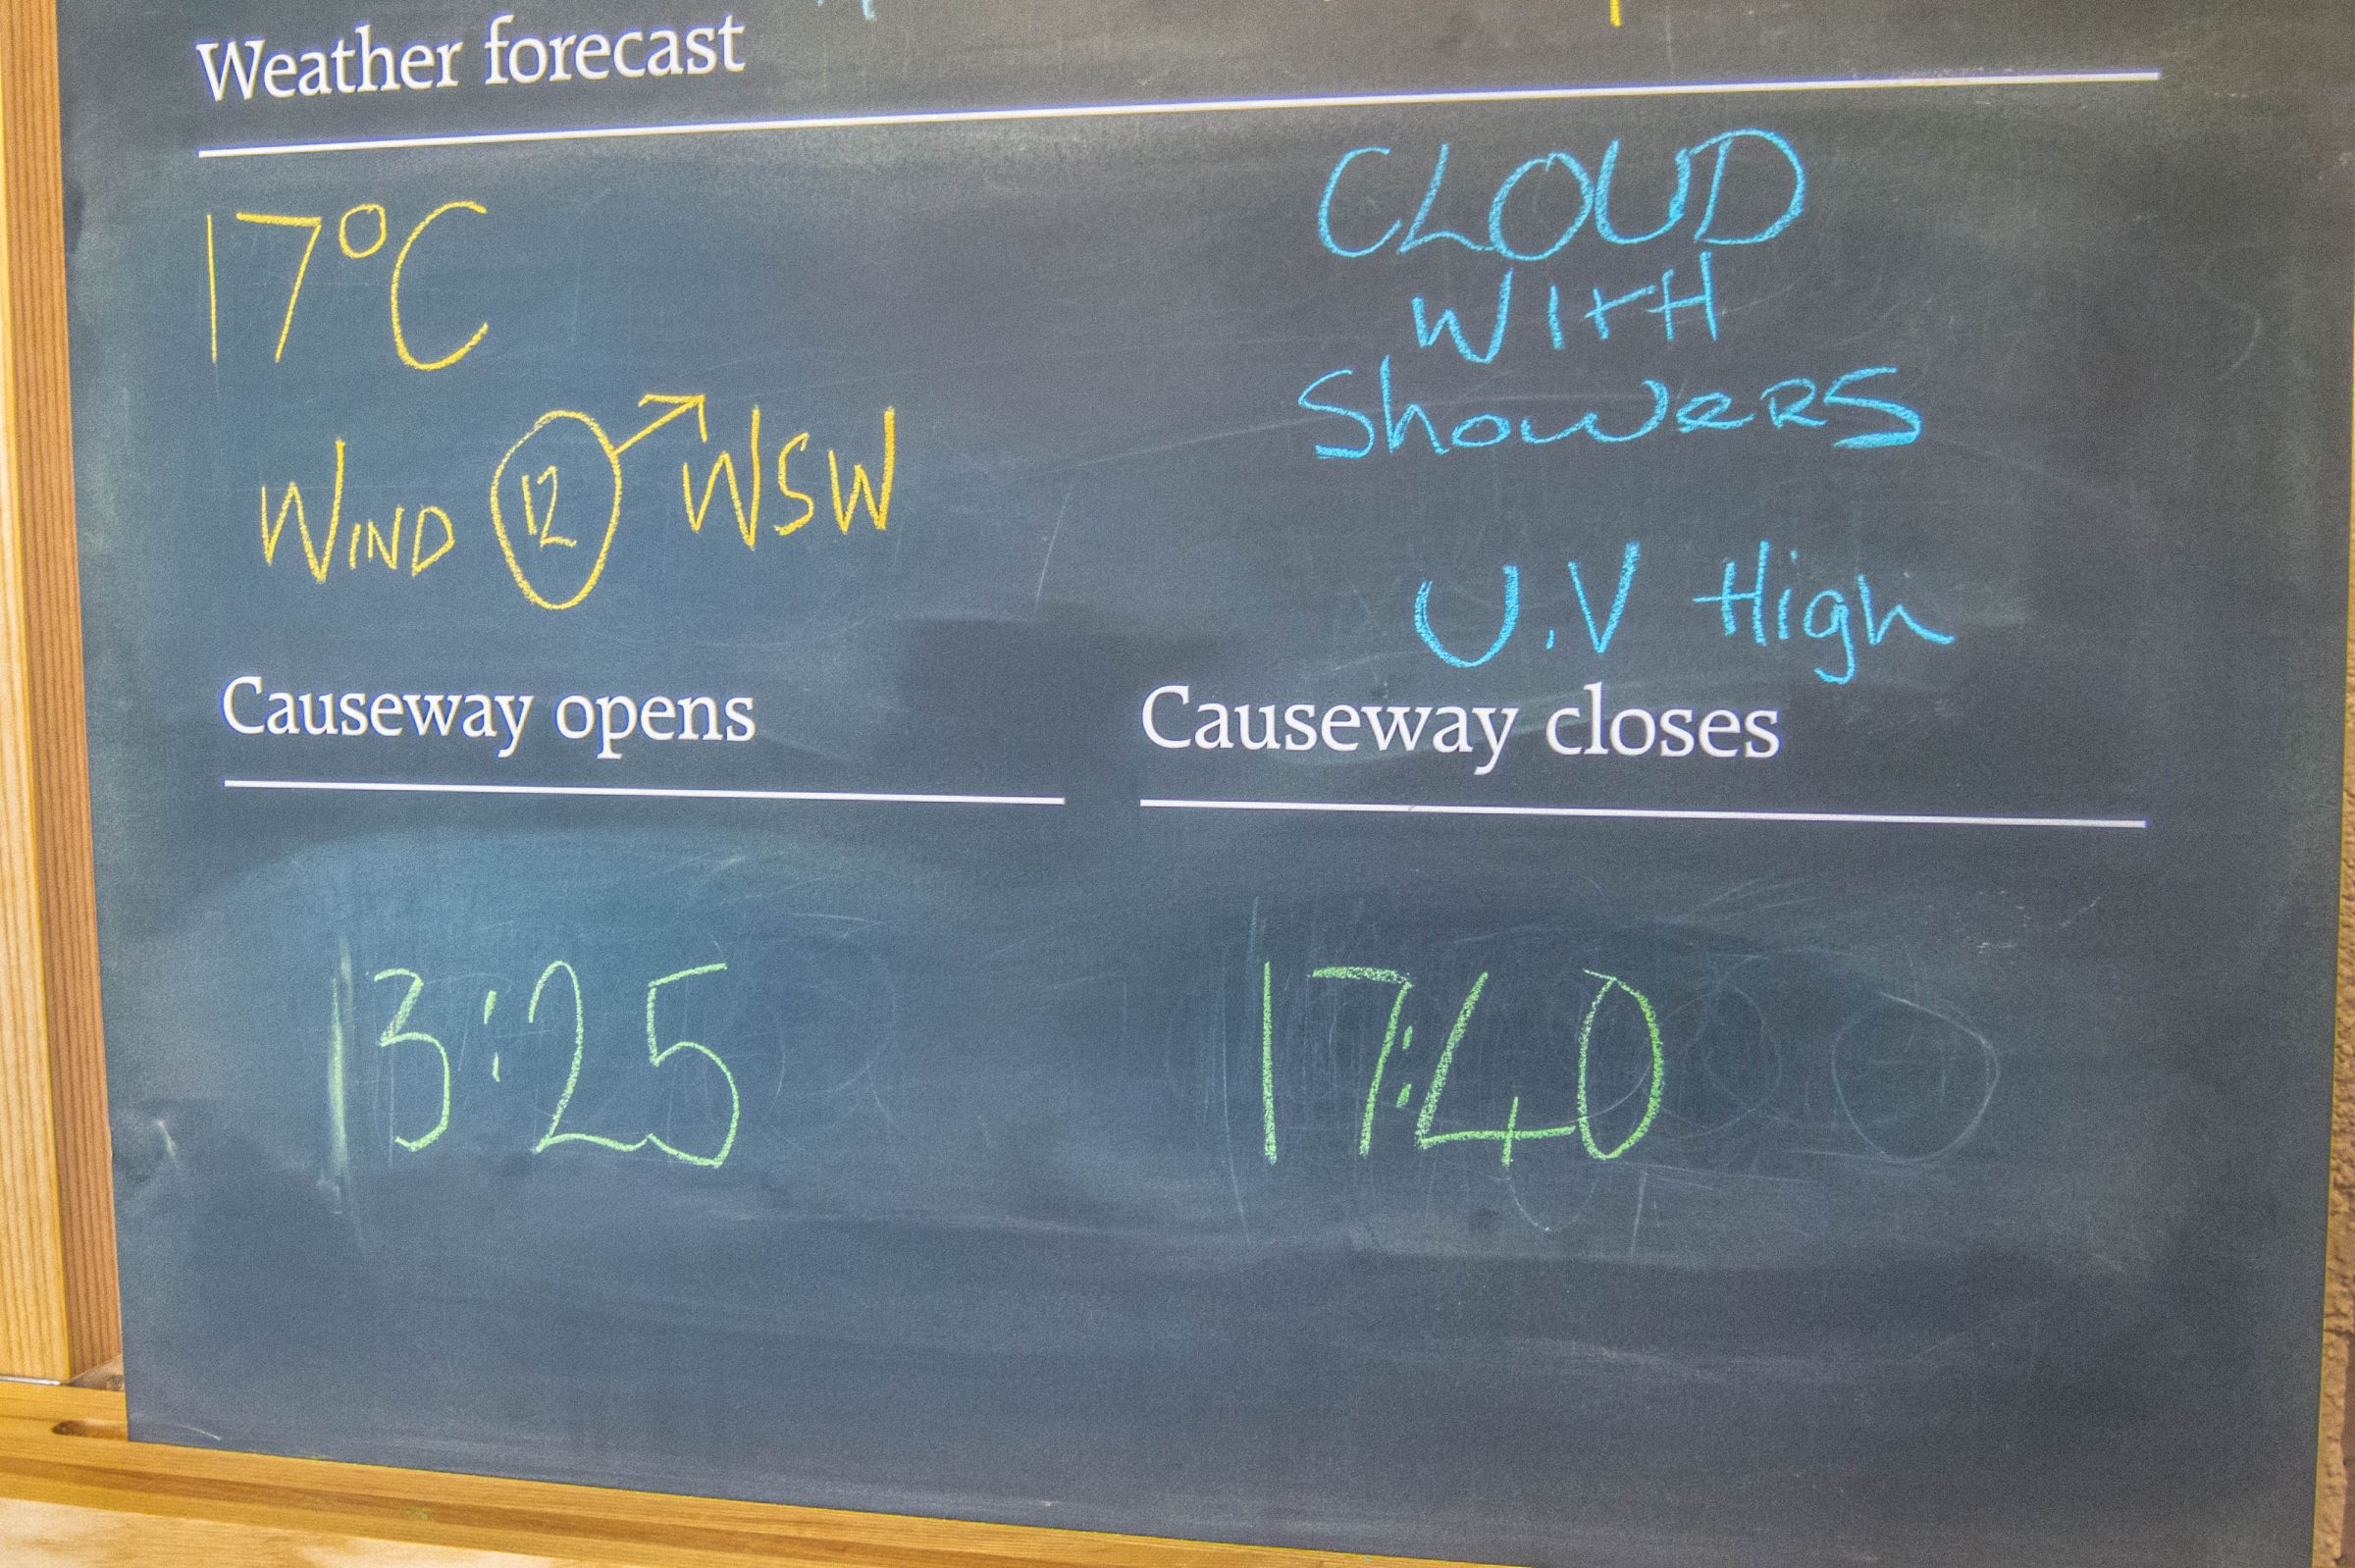 Weather forecast
17°C
WIND 12 WSW
CLOUD
WITH
ShOWERS
U.V High
Causeway opens
Causeway closes
13:25
17:40